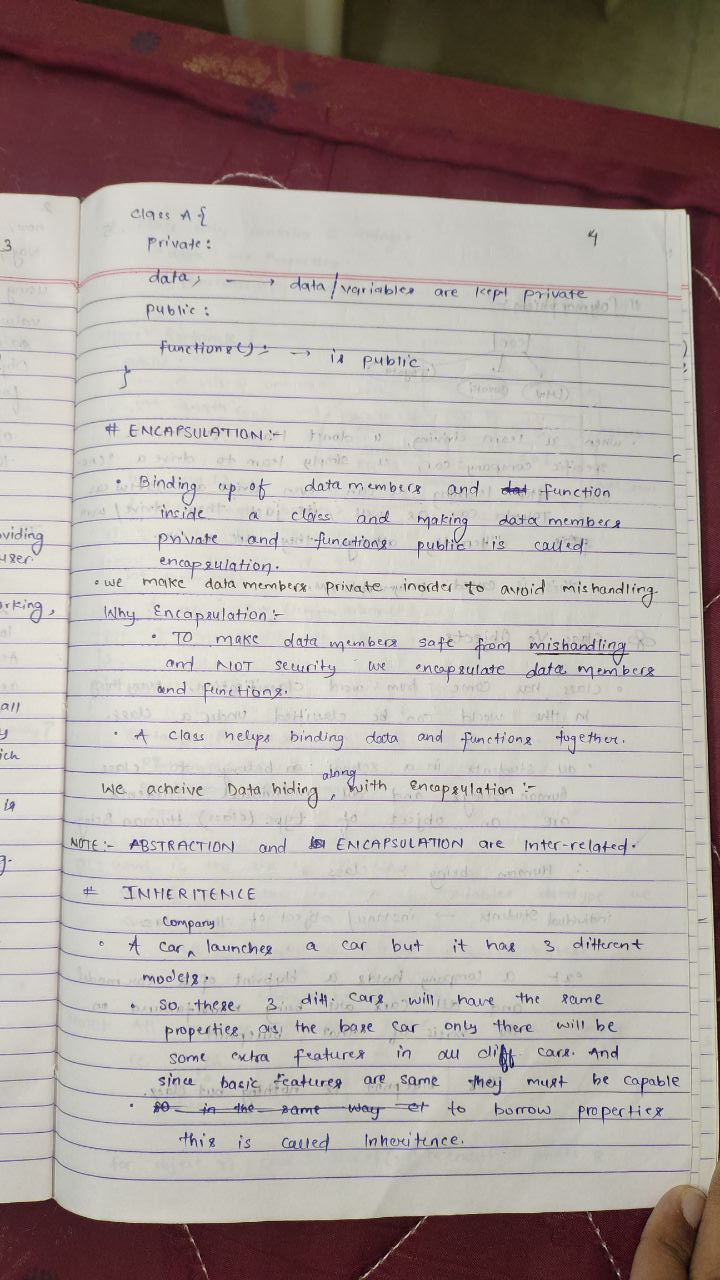 4
class A {
private:
data; → data/variables are kept private
public:
functions(); → is public
}
# ENCAPSULATION:-
• Binding up of data members and function
inside a class and making data members
private and functions public is called
encapsulation.
• we make data members private inorder to avoid mishandling.
Why Encapsulation:-
• TO make data members safe from mishandling
and NOT security we encapsulate data members
and functions.
• A class helps binding data and functions together.
We acheive Data hiding, along with Encapsulation :-
NOTE:- ABSTRACTION and ENCAPSULATION are Inter-related.
# INHERITENCE
• A car company launches a car but it has 3 different
models.
• so these 3 diff. cars will have the same
properties as the base car only there will be
some extra features in all diff cars. And
since basic features are same they must be capable
• so in the same way et to borrow properties
this is called Inheritence.
3
viding
user
rking,
all
ich
is